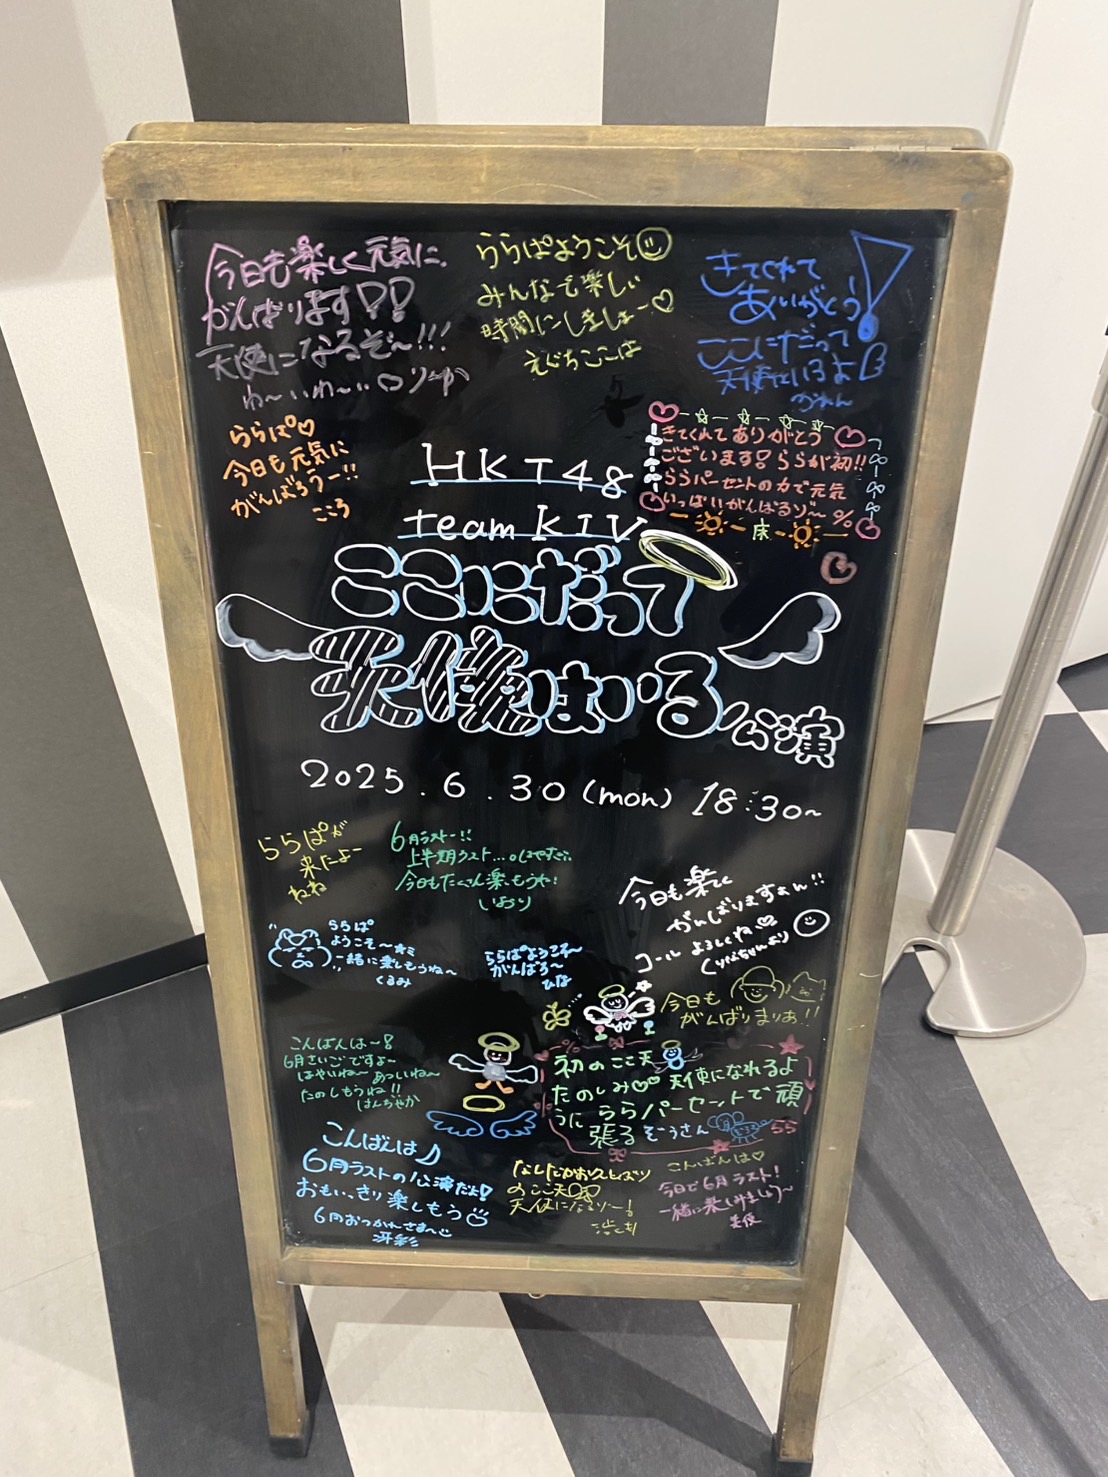 今日も楽しく元気に
がんばります!!
天使になるぞ〜!!!
ららぱようこそ
みんなも楽しい
時間にしましょー♡
えぐちここは
きてくれて
ありがとう!
ここにだって
天使はいるよ
かれん
ららぱ♡
今日も元気に
がんばろうー!!
こころ
きてくれてありがとう
ございます! ららが初!!
ららパーセントの力で元気
いっぱいがんばるゾ〜 %
HKT48
team KIV
ここにだって
天使はいる公演
2025.6.30(mon) 18:30~
ららぱが
来たよー
ねね
6月ラストー!!
上半期ラスト...はやすぎ
今日もたくさん楽しもうね!
いおり
今日も楽しく
がんばりますよん!!
コール よろしくね♡
ららぱ
ようこそ〜★ミ
一緒に楽しもうね〜
くるみ
ららぱようこそ〜
がんばろ〜
ひな
今日も
がんばりまりあ!!
こんばんは〜!
6月さいごですよ〜
はやいね〜 あついね〜
たのしもうね!!
はんぢゃか
初のここ天
たのしみ♡ 天使になれるよ
うに ららパーセントで頑
張る ぞうさん
らら
こんばんは♪
6月ラストの公演だよ!
おもいっきり楽しもう
6月おつかれさま〜
冴彩
のここ天
天使になるゾー!
こんばんは♡
今日で6月ラスト!
一緒に楽しみましょう〜